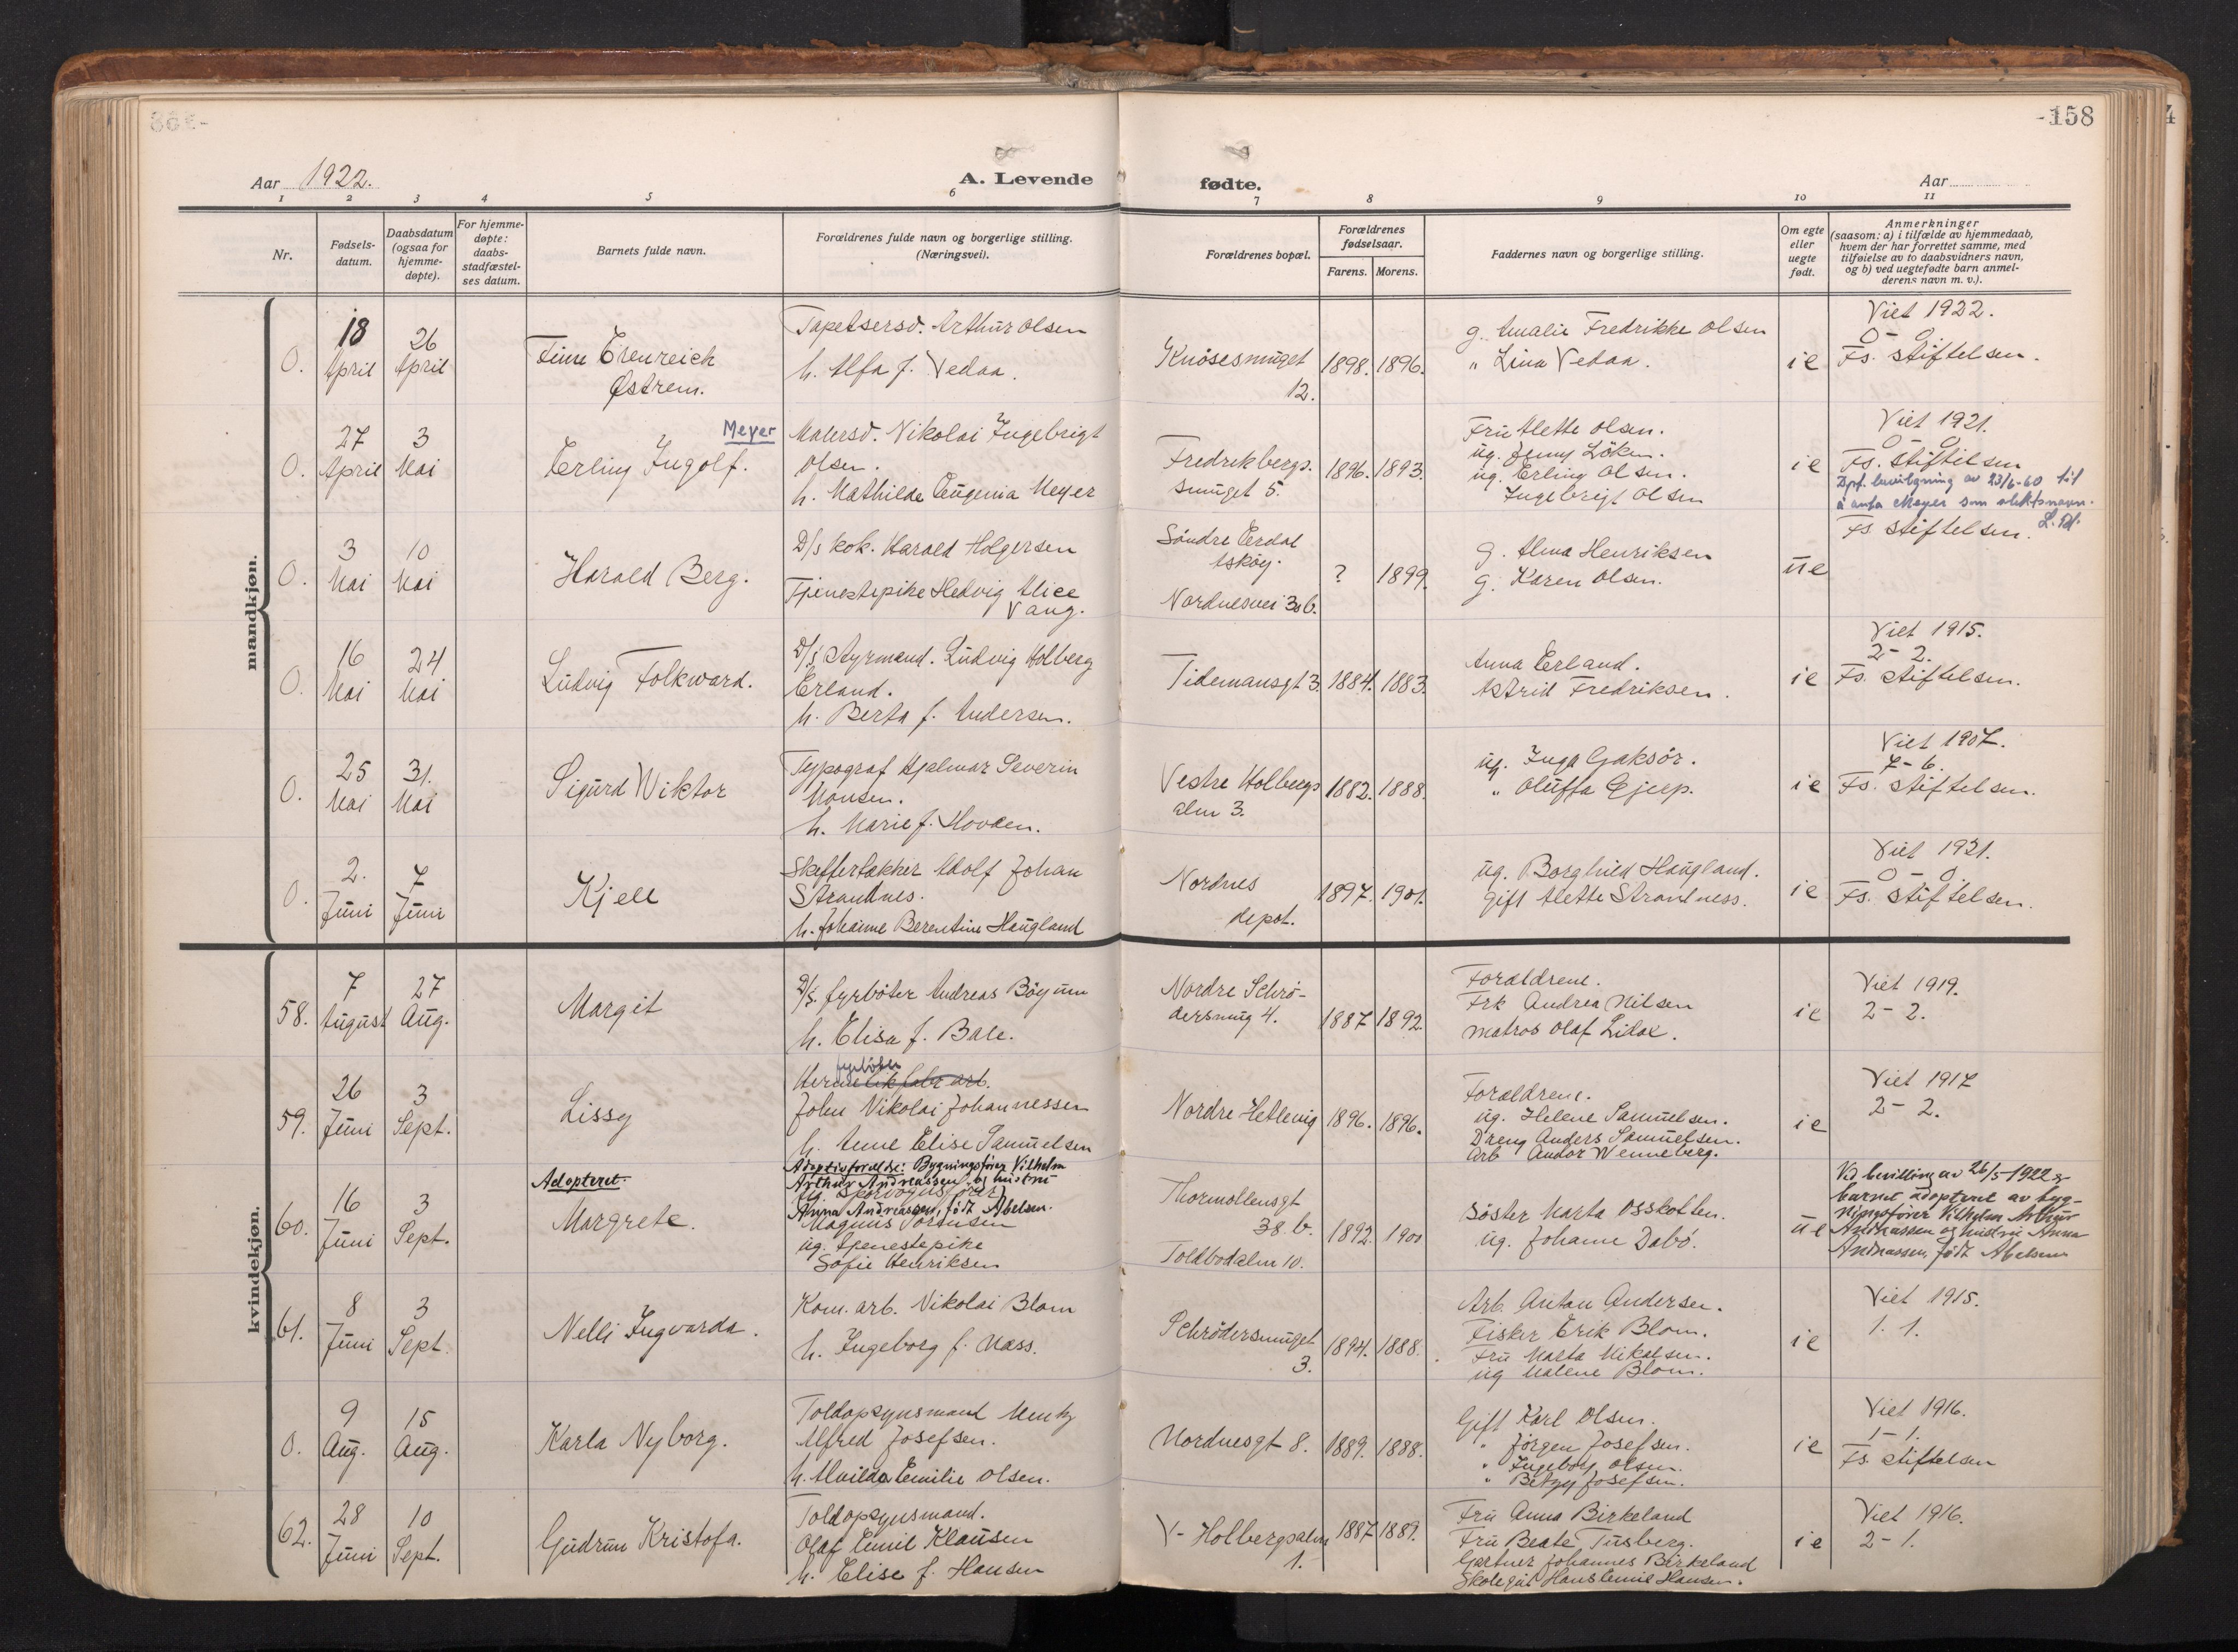 -158
Aar 1922.
A. Levende
fødte.
Aar
1 2 3 4 5 6 7 8 9 10 11
Nr.
Fødsels-
datum.
Daabsdatum
(ogsaa for
hjemme-
døpte).
For hjemme-
døpte:
daabs-
stadfæstel-
ses datum.
Barnets fulde navn.
Forældrenes fulde navn og borgerlige stilling.
(Næringsvei).
Forældrenes bopæl.
Forældrenes
fødselsaar.
Farens. Morens.
Faddernes navn og borgerlige stilling.
Om egte
eller
uegte
født.
Anmerkninger
(saasom: a) i tilfælde av hjemmedaab,
hvem der har forrettet samme, med
tilføielse av to daabsvidners navn,
og b) ved uegtefødte barn anmel-
derens navn m. v.).
mandkjøn.
0.
18
April
26
April
Finn Erenreich
Østrem.
Tapetsersv. Arthur Olsen
h. Alfa f. Vedaa.
Knøsesmuget
12.
1898. 1896.
g. Amalie Fredrikke Olsen
" Lina Vedaa.
ie
Viet 1922.
0 - 0.
Fs. stiftelsen.
0.
27
April
3
Mai
Meyer
Erling Ingolf.
Malersv. Nikolai Ingebrigt
Olsen.
h. Mathilde Eugenia Meyer
Fredrikbergs.
smuget 5.
1896. 1893.
Fru Alette Olsen.
ug. Jenny Löken.
ug. Erling Olsen.
Ingebrigt Olsen
ie
Viet 1921.
0 - 0.
Fs. stiftelsen
Dpt. bevilgning av 23/6-60 til
å anta Meyer som slektsnavn.
0.
3
Mai
10
Mai
Harald Berg.
D/s kok. Harald Holgersen
Tjenestepike Hedvig Alice
Vang.
Söndre Eerdal
Askøy.
Nordnesvei 30 b.
? 1899.
g. Alma Henriksen
g. Karen Olsen.
ue
Fs stiftelsen.
0.
16
Mai
24
Mai
Ludvig Folkward.
D/s styrmand. Ludvig Holberg
Erland.
h. Berta f. Andersen.
Tidemansgt 3. 1884. 1883.
Anna Erland.
Astrid Fredriksen.
ie
Viet 1915.
2 - 2.
Fs. stiftelsen.
0.
25
Mai
31.
Mai
Sigurd Wiktor
Typograf Hjalmar Severin
Monsen.
h. Marie f. Hovden.
Vestre Holbergs
alm 3.
1882. 1888.
ug. Inga Gaksör.
" Oluffa Gjerp.
ie
Viet 1907.
7 - 6.
Fs. stiftelsen.
0.
2.
Juni
7
Juni
Kjell
Skiffertækker Adolf Johan
Strandnes.
h. Johanne Berentine Haugland
Nordnes
depot.
1897. 1901.
ug. Borghild Haugland.
gift Alette Strandness.
ie
Viet 1921.
0 - 0.
Fs. stiftelsen.
kvindekjøn.
58.
7
August
27
Aug.
Margit
D/s. fyrböter Andreas Böyum
h. Elisa f. Bale.
Nordre Schrö-
dersmug 4.
1887 1892.
Forældrene.
Frk Andrea Nilsen
matros Olaf Lidal.
ie
Viet 1919.
2 - 2.
59.
26
Juni
3
Sept.
Lissy
fyrböter
Hermetikfabr arb.
John Nikolai Johannessen
h. Anne Elise Samuelsen
Nordre Hetlevig 1896. 1896.
Forældrene.
ug. Helene Samuelsen.
Dreng Anders Samuelsen.
Arb Andor Wenneberg.
ie
Viet 1917
2 - 2.
60.
16
Juni
3
Sept.
Adopteret.
Margrete.
Adoptivforældre: Bygningsfører Vilhelm
Arthur Andreassen og hustru
ug. sporvognsfører
Anna Andreassen, født Abelsen.
Magnus Sörensen
ug. tjenestepike
Sofie Henriksen
Thormöllensgt
38 b.
Toldbodalm 10.
1892. 1900
Söster Marta Osskotten.
ug. Johanne Dabö.
ue
Ved bevilling av 26/5-1922 er
barnet adopteret av byg-
ningsfører Vilhelm Arthur
Andreassen og hustru Anna
Andreassen, født Abelsen
61.
8
Juni
3
Sept.
Nelli Ingvarda.
Kom. arb. Nikolai Blom
h. Ingeborg f. Næss.
Schrödersmuget
3.
1894. 1888.
Arb. Anton Andersen.
Fisker Erik Blom.
Fru Marta Nikolsen.
ug Malene Blom.
ie
Viet 1915.
1. 1.
0.
9
Aug.
15
Aug.
Karla Nyborg.
Toldopsynsmand
Alfred Josefsen.
h. Alvilda Emilie Olsen.
Nordnesgt 8. 1889. 1888.
Gift Karl Olsen.
" Jörgen Josefsen.
" Ingeborg Olsen.
" Betzy Josefsen.
ie
Viet 1916.
1 - 1.
Fs. stiftelsen
62.
28
Juni
10
Sept.
Gudrun Kristofa.
Toldopsynsmand.
Olaf Emil Klausen
h. Elise f. Hansen
V- Holbergsalm
1.
1887 1889.
Fru Anna Birkeland
Fru Beate Tusberg.
Gartner Johannes Birkeland
Skolegut Hans Emil Hansen.
ie
Viet 1916.
2 - 1.